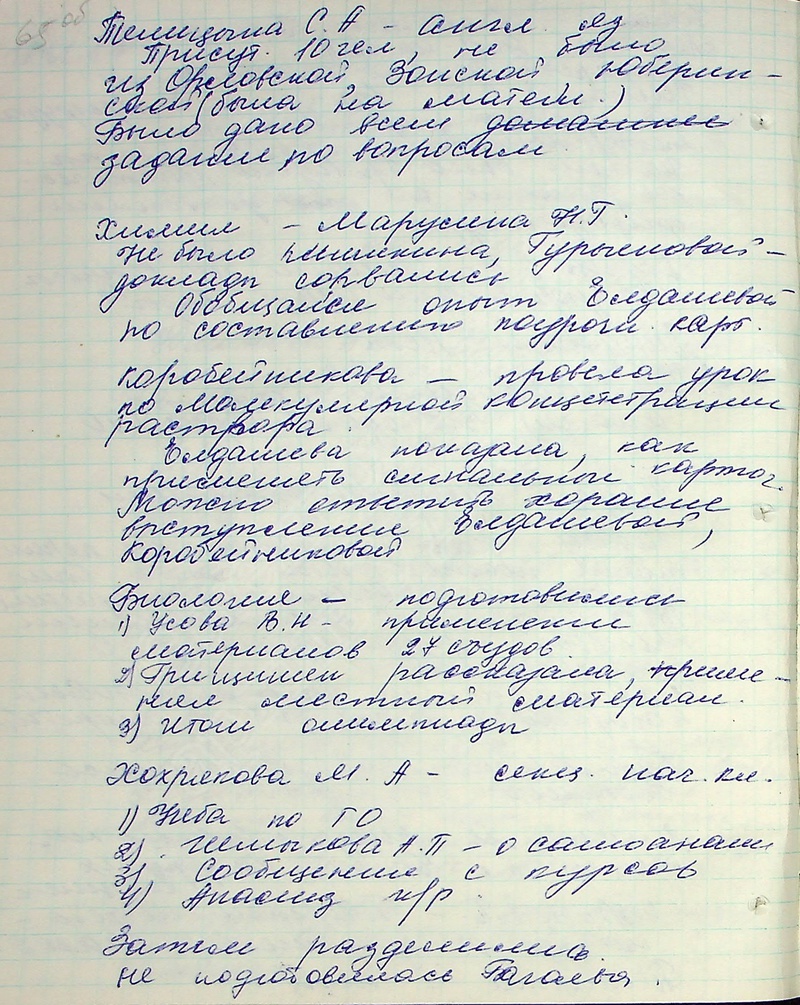 65 об
Телицына С. А - англ. яз
Присут. 10 чел, не было
из Орловской, Зонской Юберин-
ской (была на матем.)
Было дано всем домашнее
задание по вопросам
Химия - Марусина Н.Г.
Не было Кишкина, Гурьяновой -
доклады сорвались
Обобщался опыт Елдашевой
по составлению поуроч. карт.
Коробейникова - провела урок
по молекулярной концентрации
раствора
Елдашева показала, как
применять сигнальные карточ.
Можно отметить хорошие
выступление Елдашевой,
Коробейниковой
Биология - подготовились
1) Усова В.Н - применении
материалов 27 съездов
2) Гришин рассказала, приме-
няя местный материал.
3) Итоги олимпиады
Хохрякова М. А - секц. нач. кл.
1) Учеба по ГО
2) Шмыкова А.П - о самоанали
3) Сообщение с курсов
4) Анализ к/р.
Затем разделились.
не подготовилась